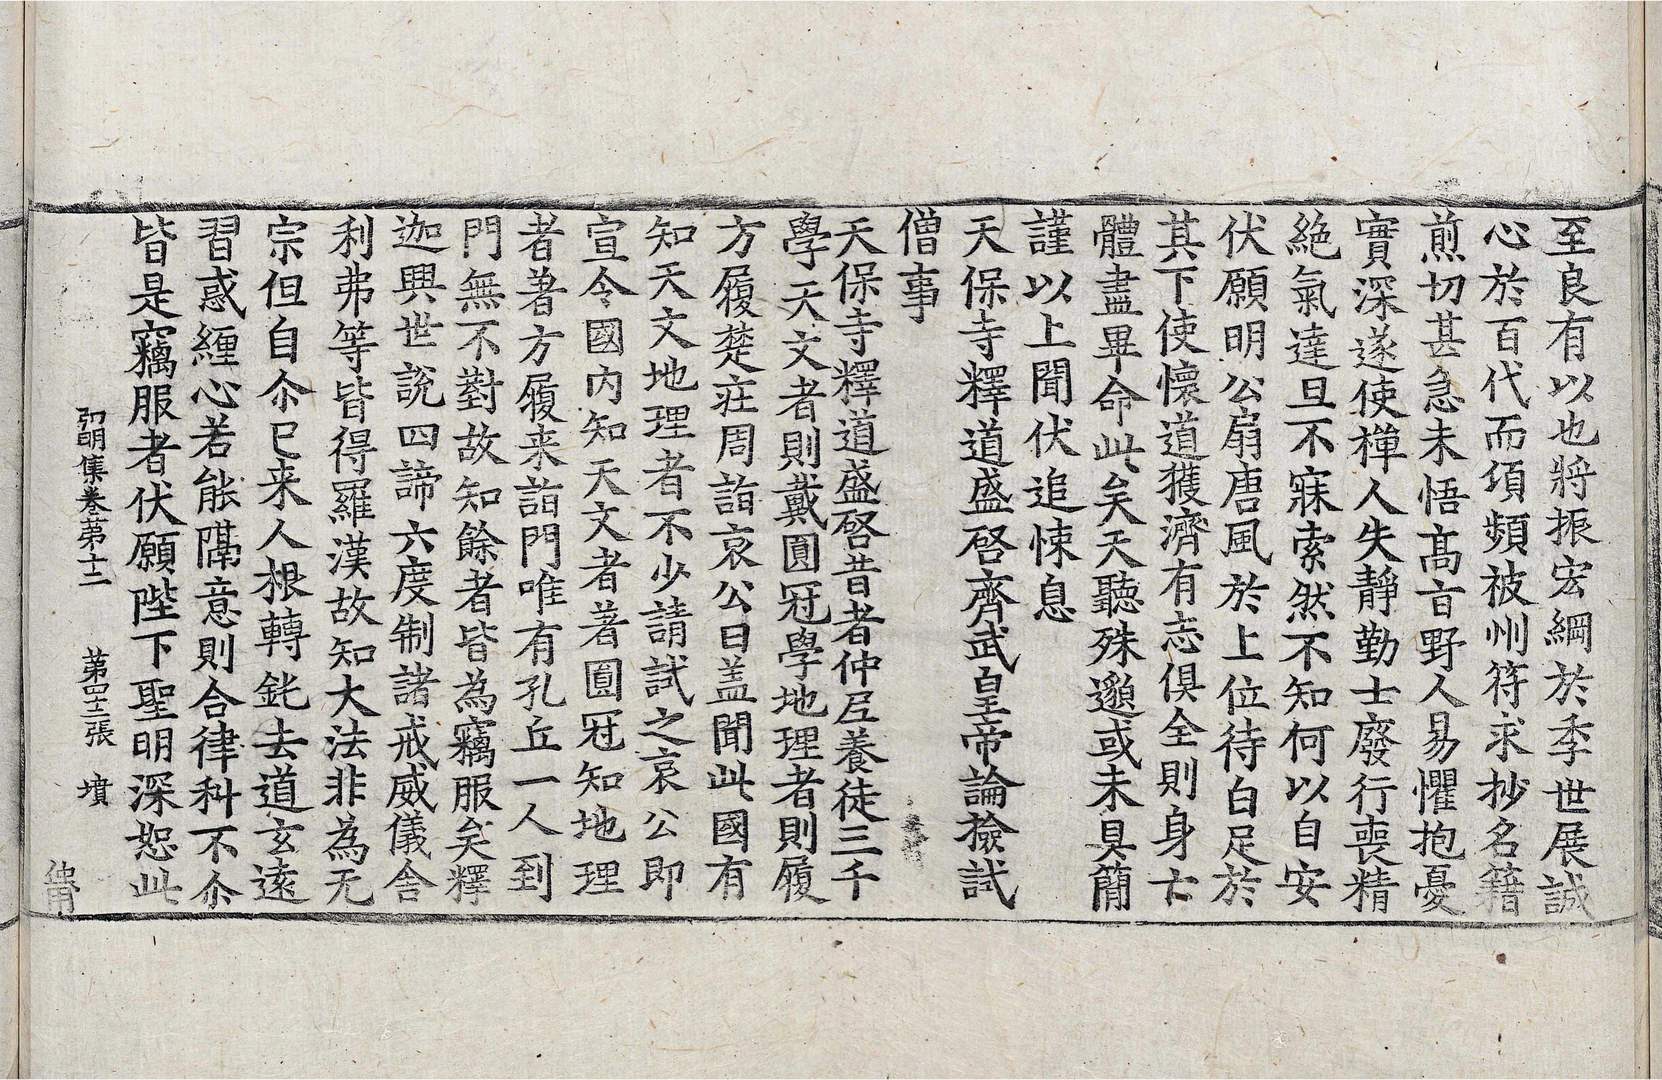 至良有以也將振宏綱於季世展誠
心於百代而頃頻被州符求抄名籍
煎切甚急未悟高旨野人易懼抱憂
實深遂使禪人失靜勤士廢行喪精
絕氣達旦不寐索然不知何以自安
伏願明公扇唐風於上位待白足於
其下使懷道獲濟有志俱全則身亡
體盡畢命此矣天聽殊邈或未具簡
謹以上聞伏追悚息
天保寺釋道盛啓齊武皇帝論撿試
僧事
天保寺釋道盛啓昔者仲尼養徒三千
學天文者則戴圓冠學地理者則履
方履楚莊周詣哀公曰盖聞此國有
知天文地理者不少請試之哀公即
宣令國內知天文者著圓冠知地理
者著方履来詣門唯有孔丘一人到
門無不對故知餘者皆為竊服矣釋
迦興世說四諦六度制諸戒威儀舍
利弗等皆得羅漢故知大法非為无
宗但自尒已来人根轉鈍去道玄遠
習惑纏心若能隔意則合律科不尒
皆是竊服者伏願陛下聖明深恕此
弘明集卷第十二 第四十二張 墳